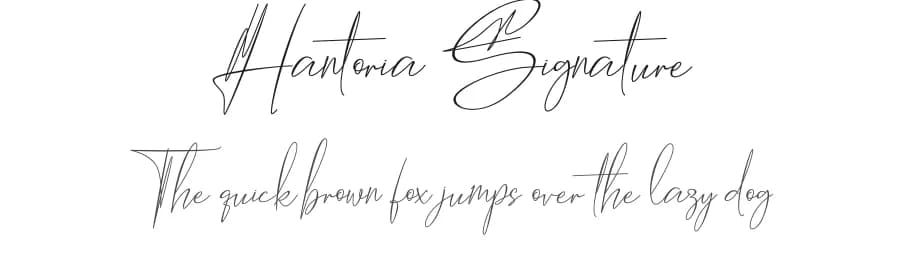 Hantoria Signature
The quick brown fox jumps over the lazy dog